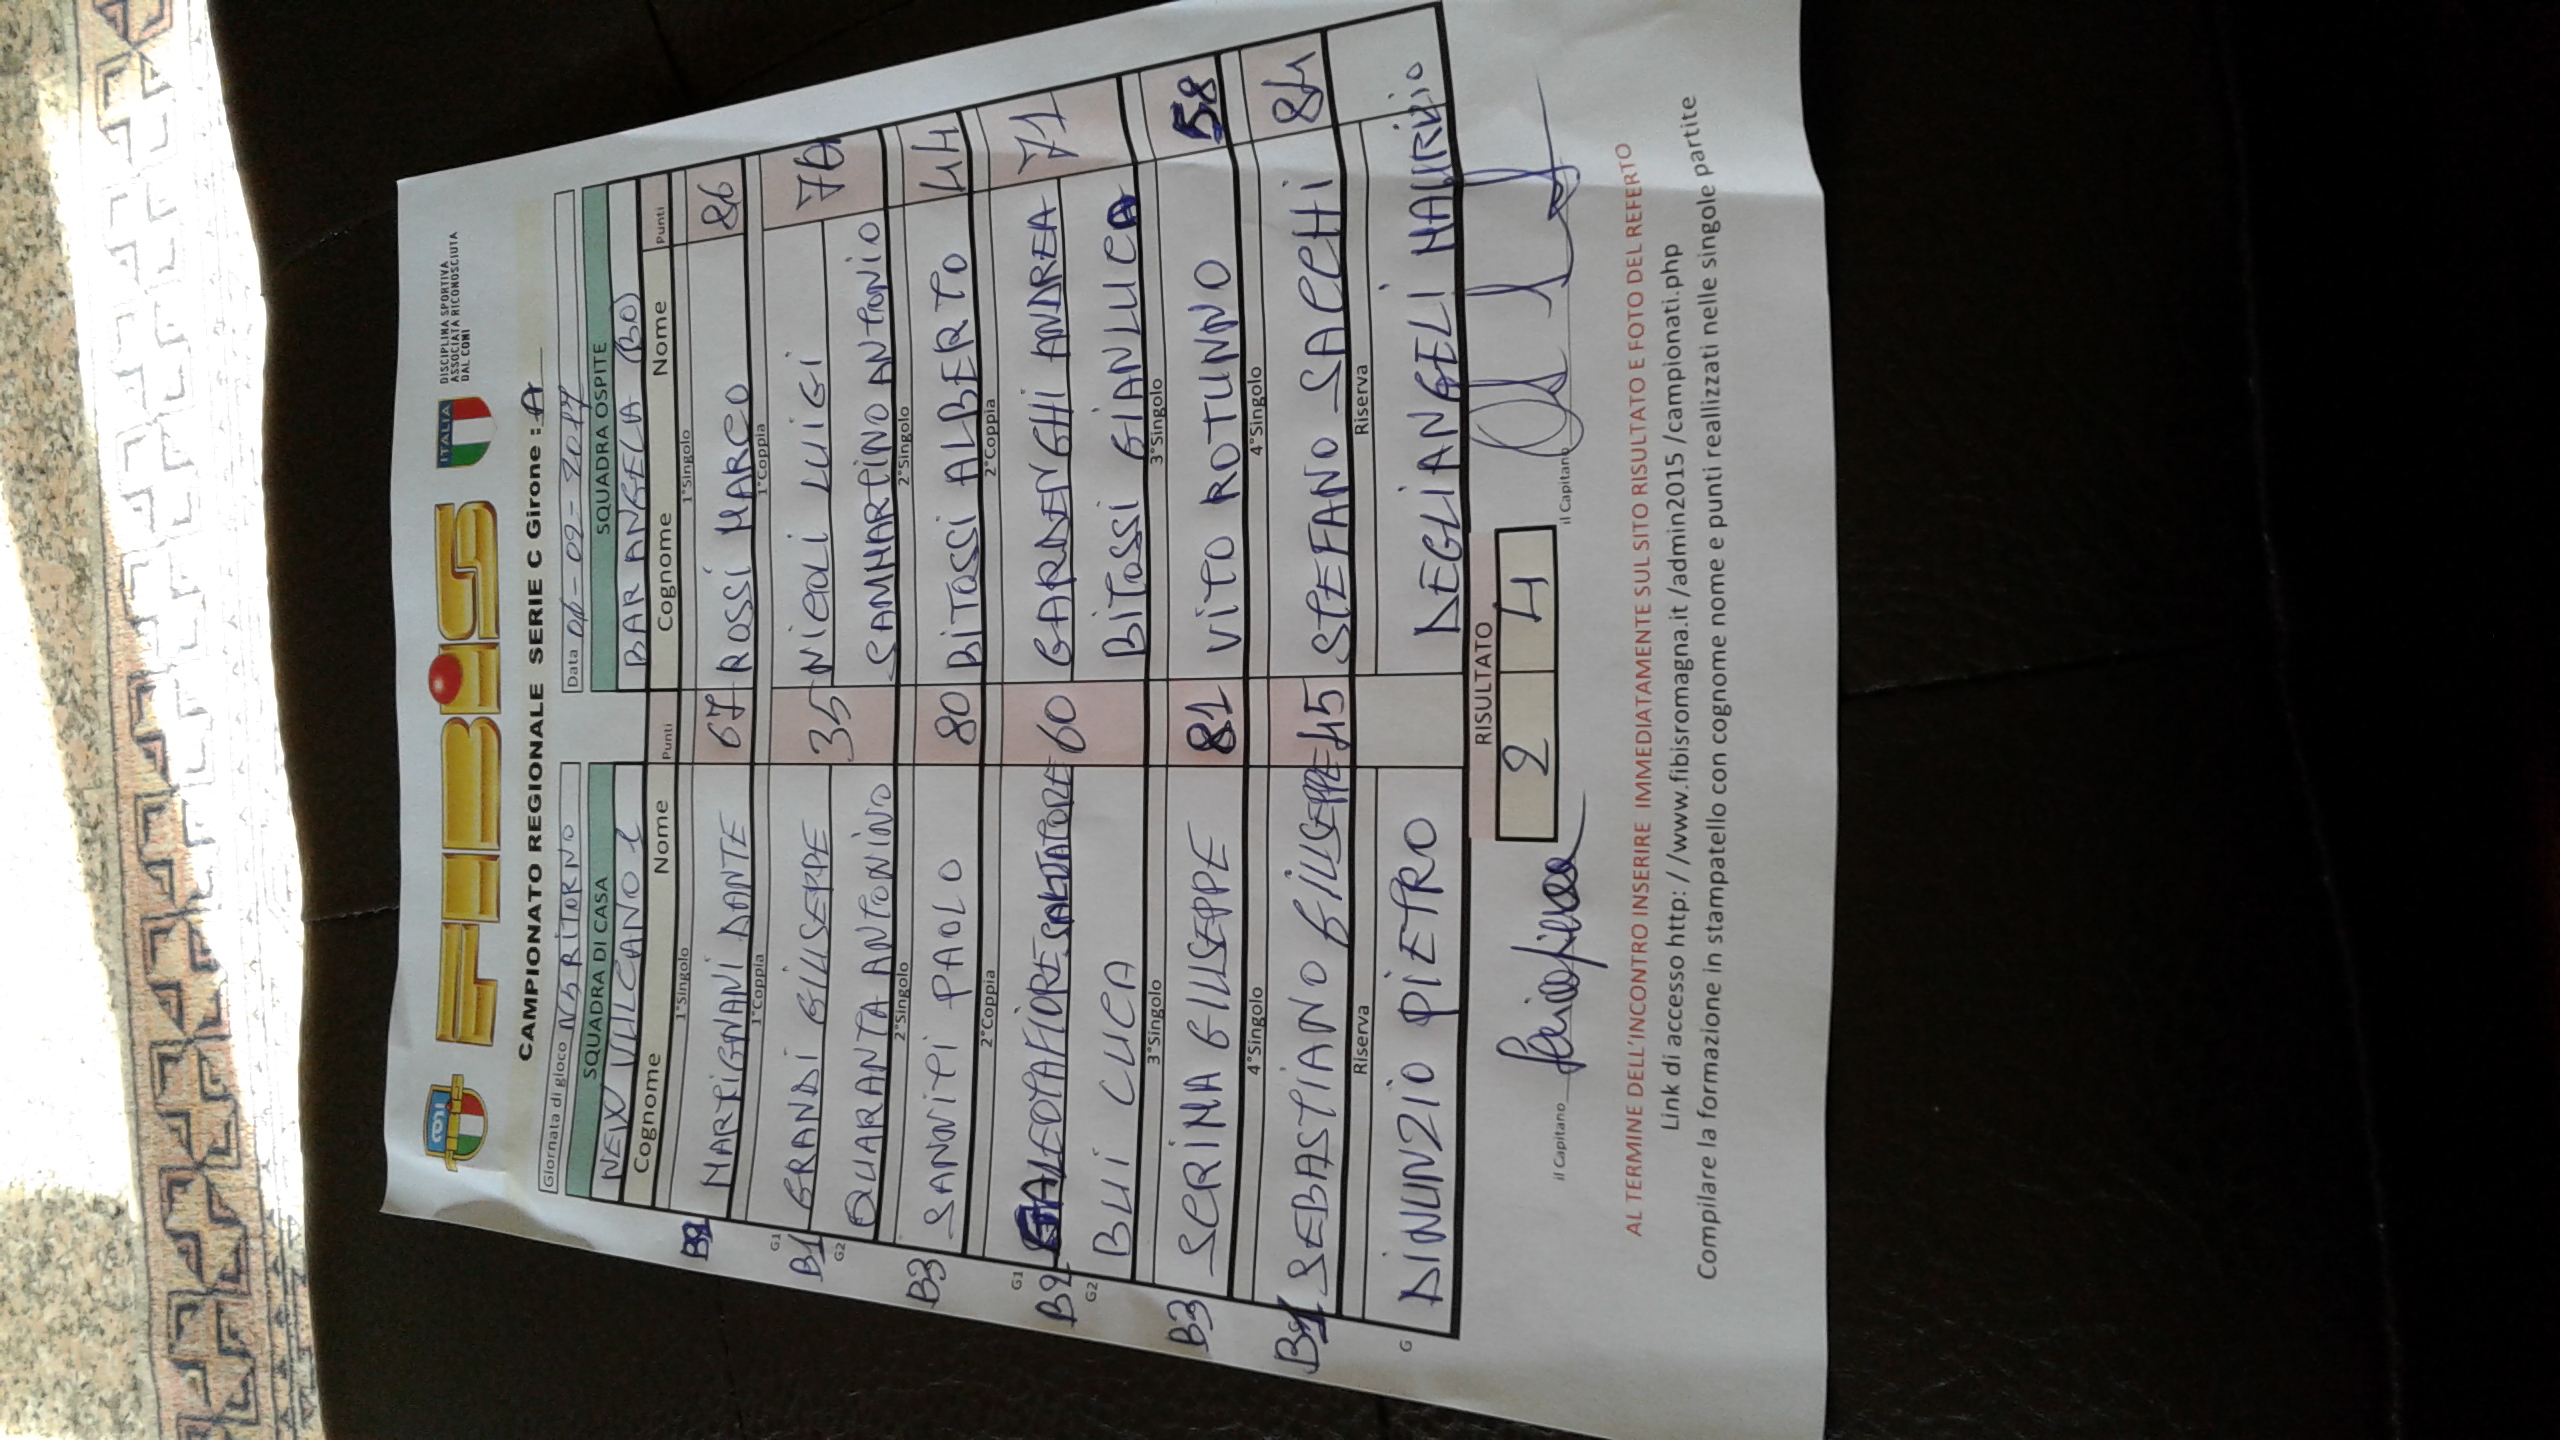 CONI
FIBiS
ITALIA
DISCIPLINA SPORTIVA
ASSOCIATA RICONOSCIUTA
DAL CONI
CAMPIONATO REGIONALE SERIE C Girone : A
Giornata di gioco N5 RITORNO Data 06-02-2017
SQUADRA DI CASA SQUADRA OSPITE
NEW VULCANO BAR ANGELA (BO)
Cognome Nome Punti Cognome Nome Punti
1°Singolo 1°Singolo
B2 MARTIGNANI DANTE 67 ROSSI MARCO 86
1°Coppia 1°Coppia
G1 GRANDI GIUSEPPE NICOLI LUIGI
B1 35 76
G2 QUARANTA ANTONINO SAMMARTINO ANTONIO
2°Singolo 2°Singolo
B3 SANNITI PAOLO 80 BITOSSI ALBERTO 44
2°Coppia 2°Coppia
G1 GALEOTAFIORE SALVATORE GARDENGHI ANDREA
B2 60 71
G2 BUI LUCA BITOSSI GIANLUCA
3°Singolo 3°Singolo
B3 SERINA GIUSEPPE 81 VITO ROTUNNO 58
4°Singolo 4°Singolo
B1 SEBASTIANO GIUSEPPE 45 STEFANO SACCHI 84
Riserva Riserva
G DINUNZIO PIETRO DEGLIANGELI MAURIZIO
RISULTATO
2 4
il Capitano il Capitano
AL TERMINE DELL'INCONTRO INSERIRE IMMEDIATAMENTE SUL SITO RISULTATO E FOTO DEL REFERTO
Link di accesso http: / /www.fibisromagna.it /admin2015 /campionati.php
Compilare la formazione in stampatello con cognome nome e punti reallizzati nelle singole partite